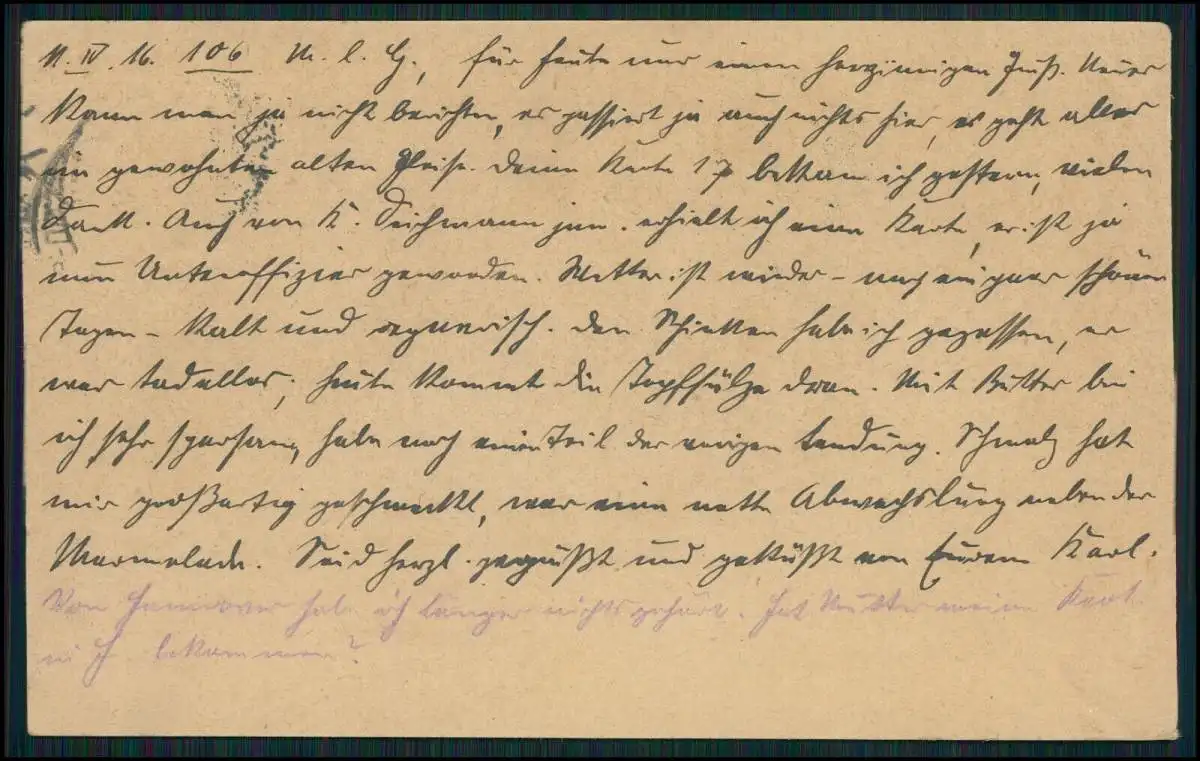 11. IV. 16. 106 M. l. G., für heute nur einen herzinnigen Gruß. Neues
kann man ja nicht berichten, es passiert ja auch nichts hier, es geht alles
im gewohnten alten Gleise. Deine Karte 17 bekam ich gestern, vielen
Dank. Auch von K. Teichmann jun. erhielt ich eine Karte, er ist ja
nun Unteroffizier geworden. Wetter ist wieder – nach ein paar schönen
Tagen – kalt und regnerisch. Den Schinken habe ich gegessen, er
war tadellos; heute kommt die Topfsülze dran. Mit Butter bin
ich sehr sparsam, habe noch einen Teil der vorigen Sendung. Schmalz hat
mir großartig geschmeckt, war eine nette Abwechslung neben der
Marmelade. Seid herzl. gegrüßt und geküßt von Eurem Karl.
Von Hannover habe ich länger nichts gehört. Hat Mutter meine Karte
nicht bekommen?